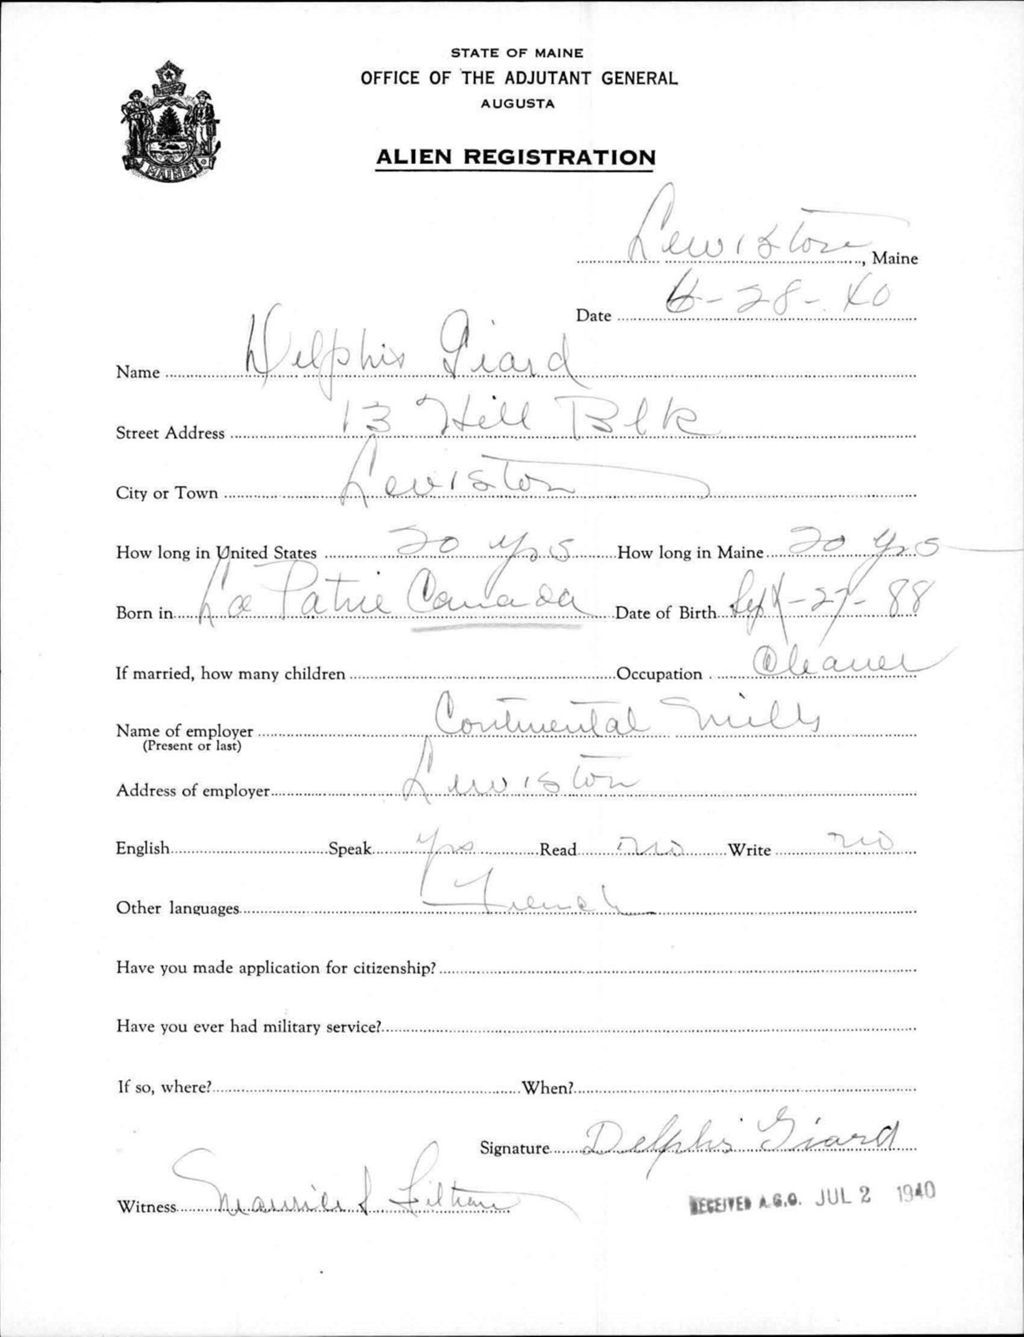 STATE OF MAINE
OFFICE OF THE ADJUTANT GENERAL
AUGUSTA
ALIEN REGISTRATION
MAINE
Lewiston, Maine
Date 6-28-40
Name Delphis Giard
Street Address 13 Hill Blk
City or Town Lewiston
How long in United States 20 yrs How long in Maine 20 yrs
Born in La Patrie Canada Date of Birth Sept-27-88
If married, how many children Occupation Cleaner
Name of employer Continental Mills
(Present or last)
Address of employer Lewiston
English Speak yes Read no Write no
Other languages French
Have you made application for citizenship?
Have you ever had military service?
If so, where? When?
Signature Delphis Giard
Witness Maurice
RECEIVED A.G.O. JUL 2 1940